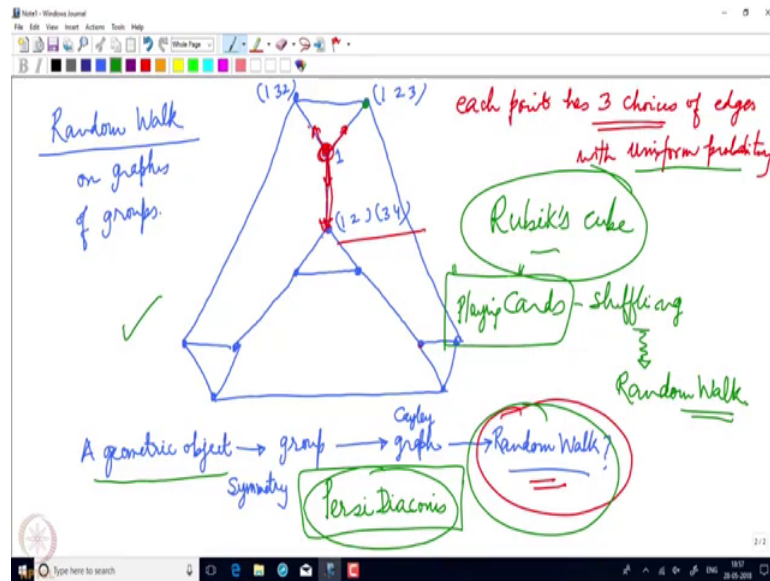 Note1 - Windows Journal
File Edit View Insert Actions Tools Help
Whole Page
B I
Random Walk
on graphs
of groups.
(1 3 2)
(1 2 3)
1
(1 2)(3 4)
each point has 3 choices of edges
with uniform probability
Rubik's cube
Playing Cards - shuffling
Random Walk
A geometric object → group → Cayley graph → Random Walk?
Symmetry
Persi Diaconis
2 / 2
NPTEL
Type here to search
ENG
18:57
28-05-2018